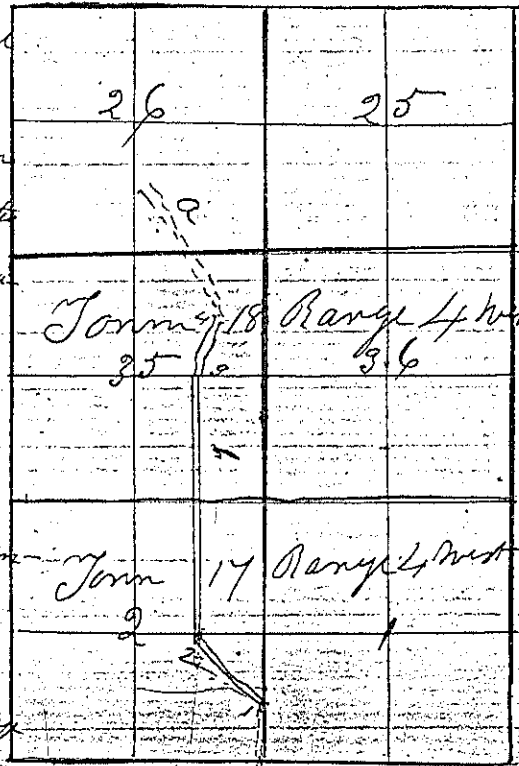 26 25
a
Town 18 Range 4 West
35 36
Town 17 Range 4 West
2 1
2
1